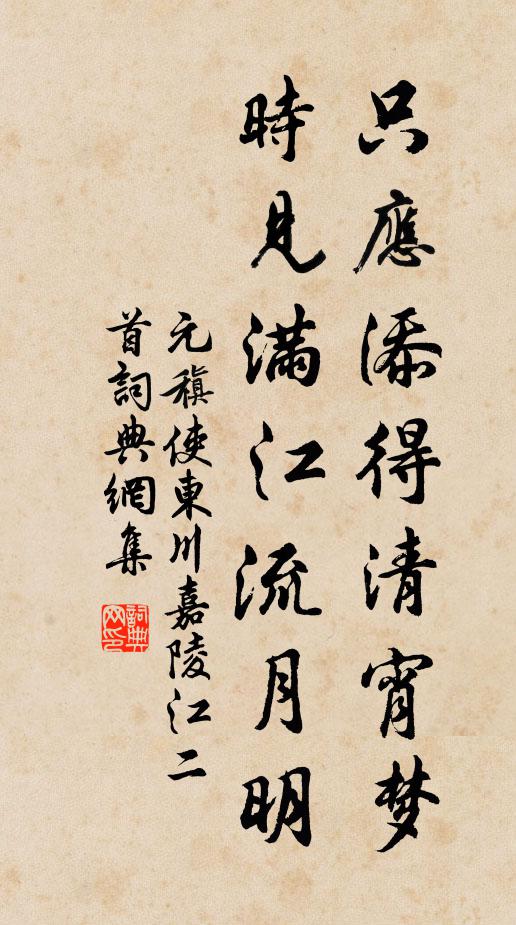 只應添得清宵梦
時見滿江流月明
元稹使東川嘉陵江二
首詞典網集
詞典
网印